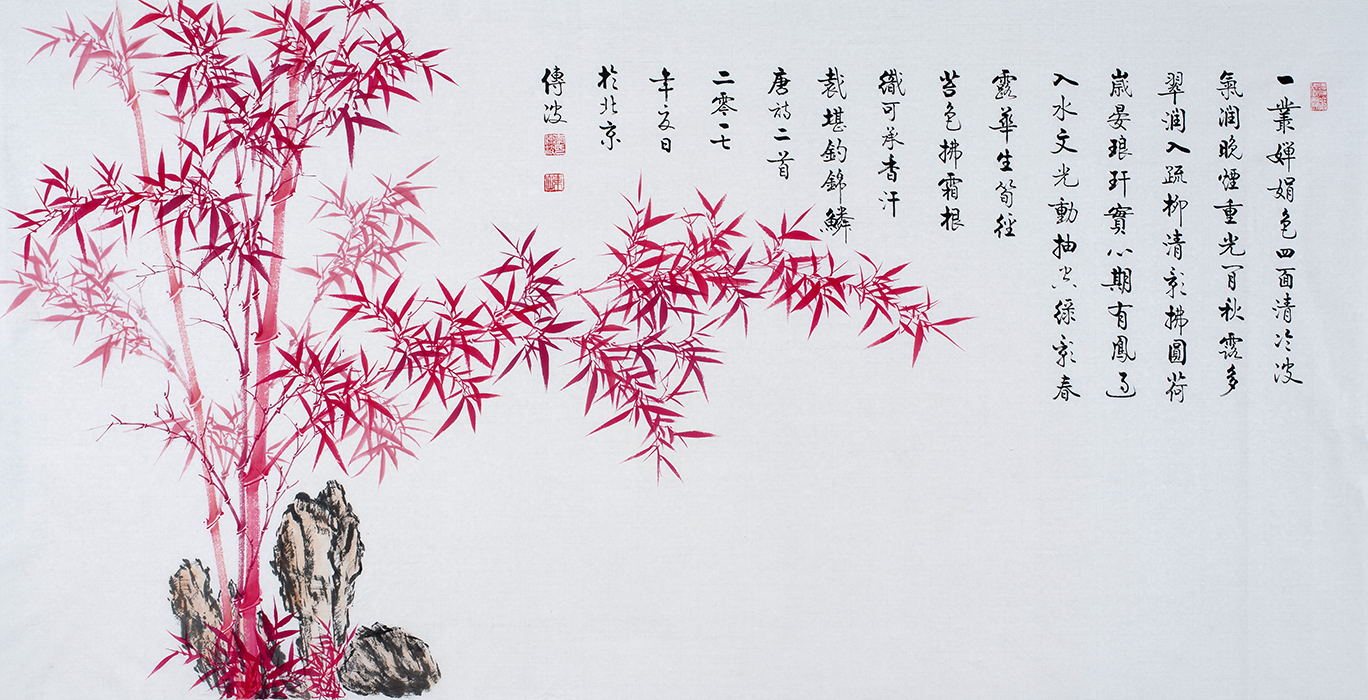 一叢嬋娟色四面清冷波
氣润晚煙重光閒秋露多
翠润入疏柳清影拂圓荷
歲晏琅玕實心期有鳳過
入水文光動抽空綠影春
露華生筍徑
苔色拂霜根
織可承香汗
裁堪釣錦鱗
唐詩二首
二零一七
年夏日
於北京
傳波